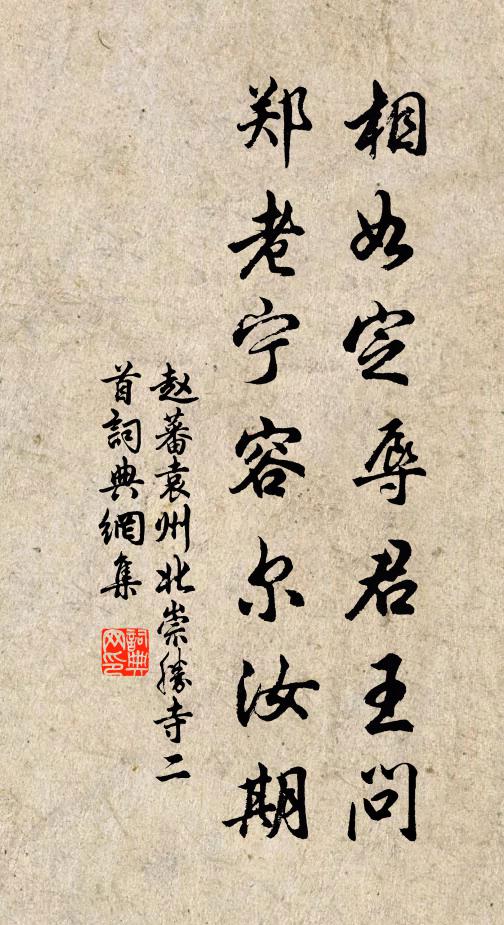 相如定辱君王问
郑老宁容尔汝期
赵蕃袁州北崇胜寺二
首词典網集
詞典網印